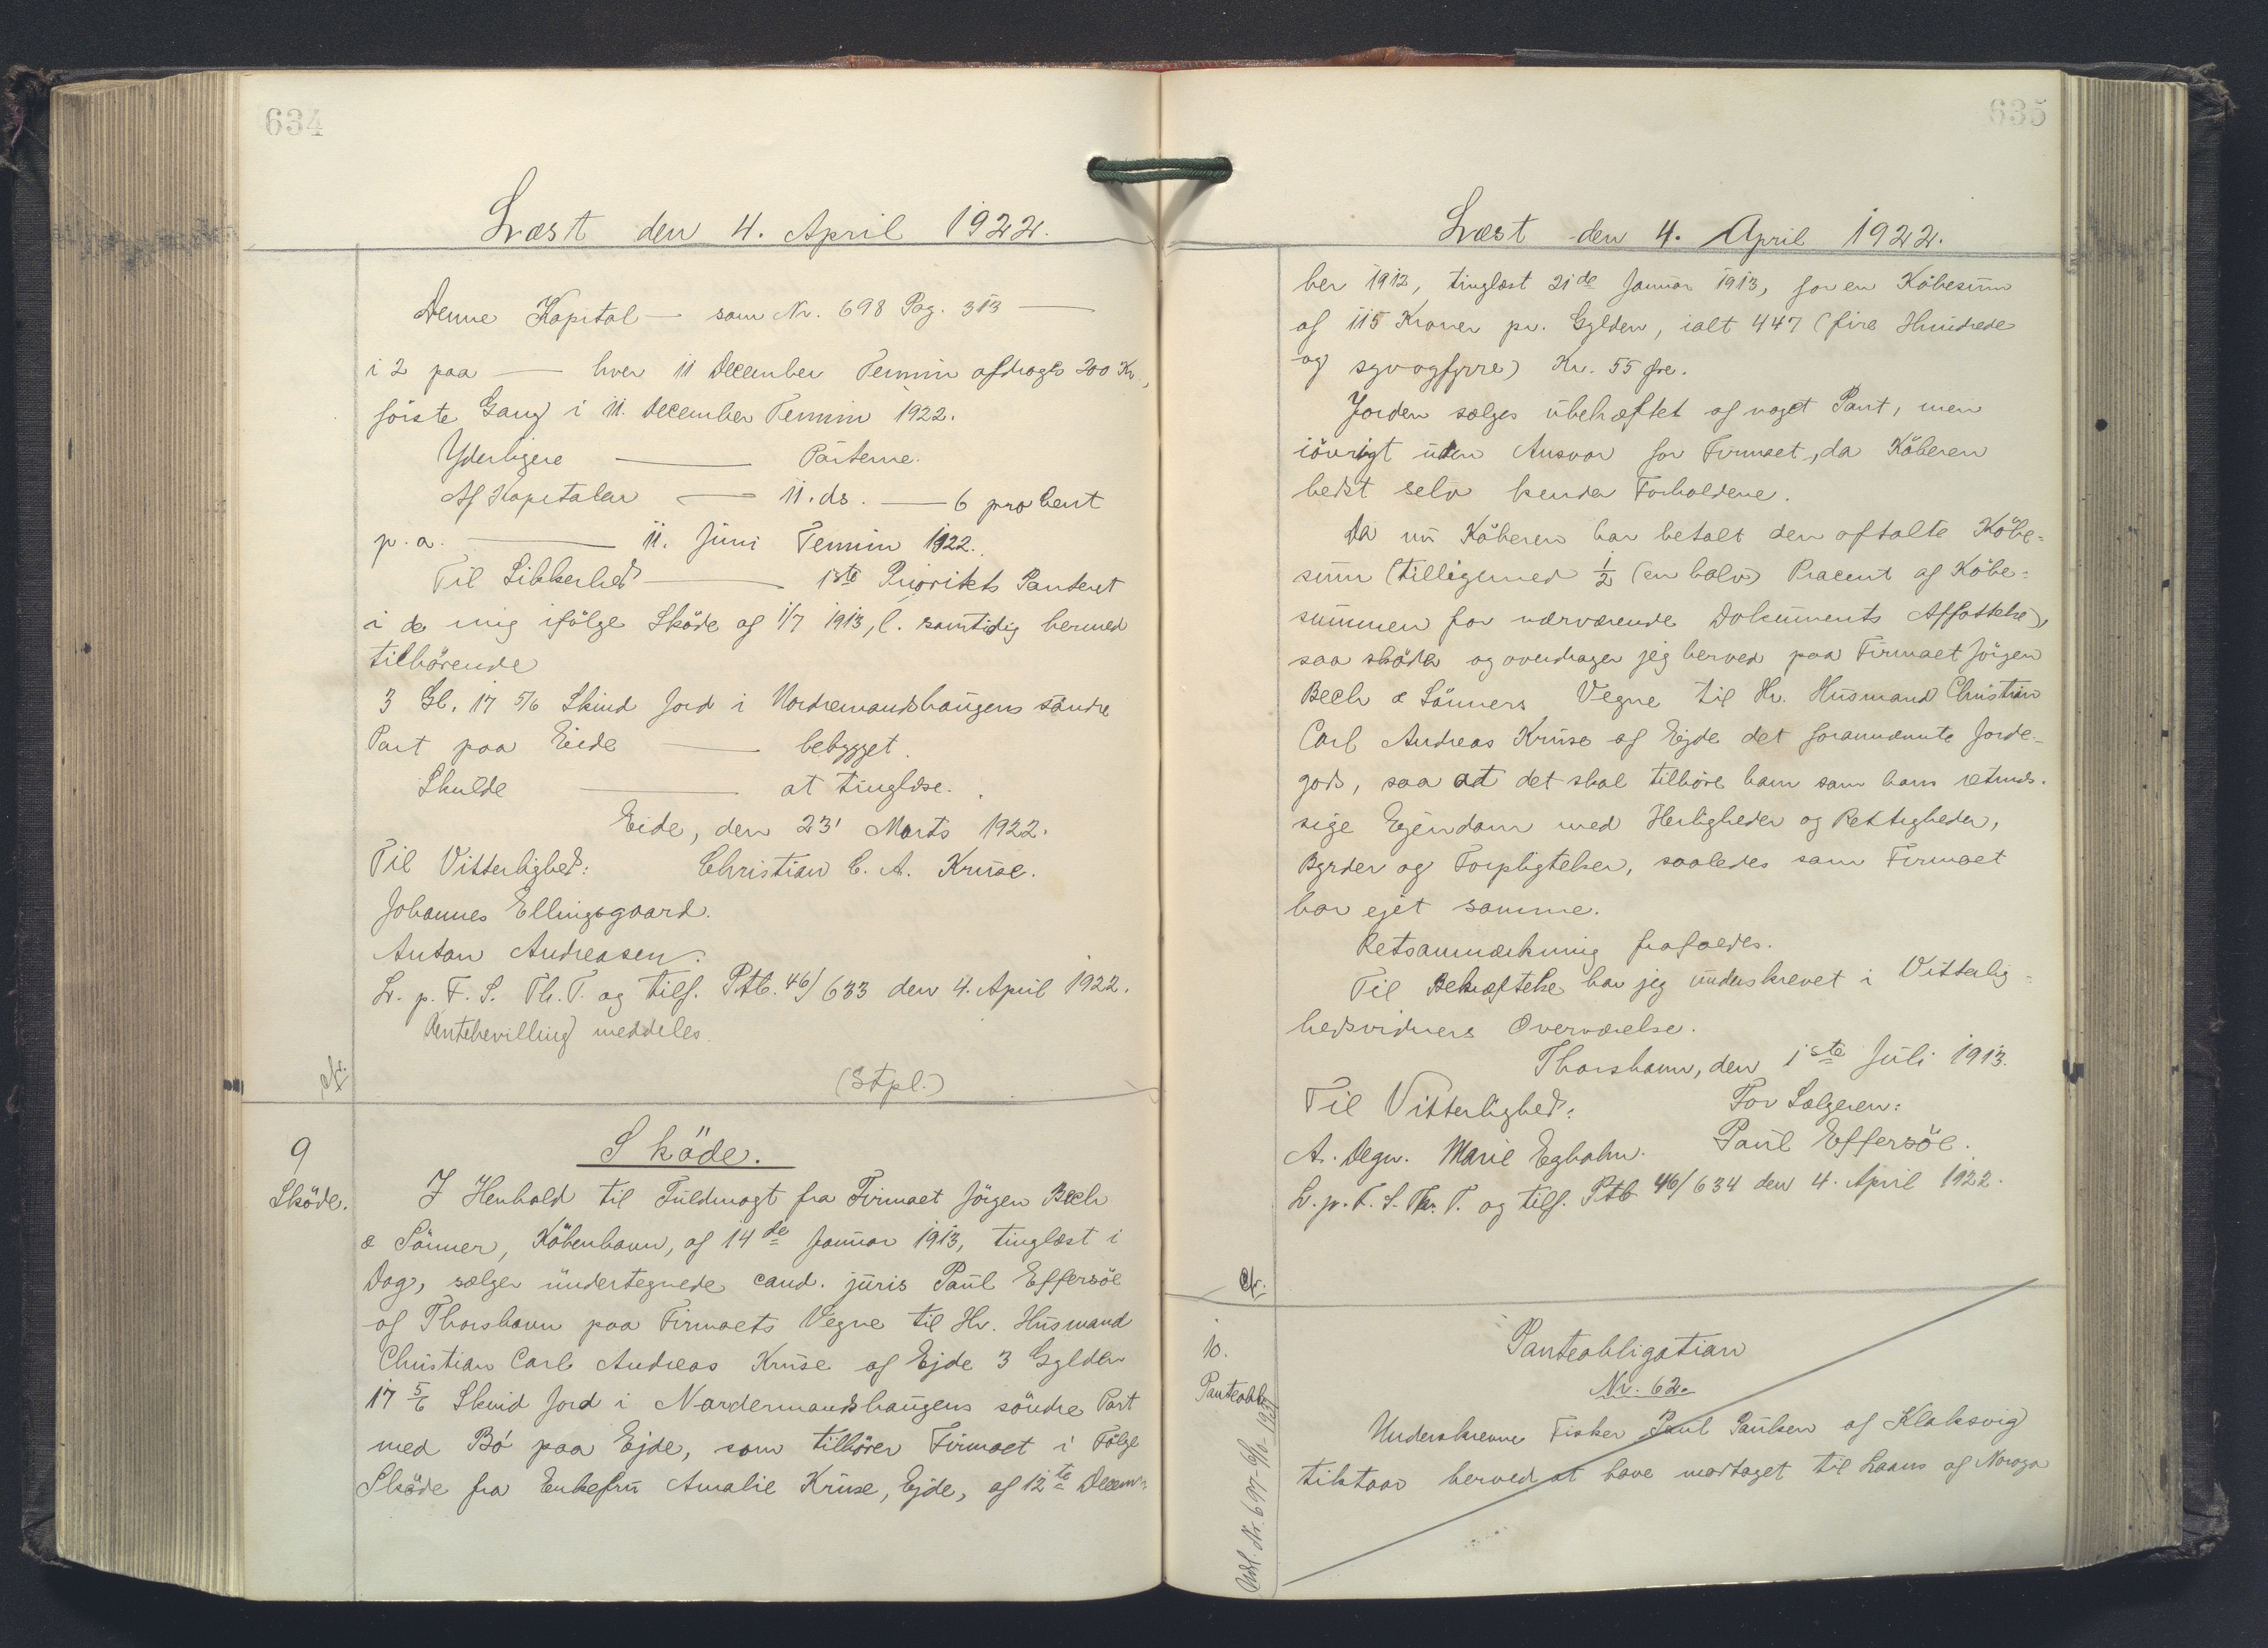 634
Læst den 4. April 1922.
Denne Kapital — som Nr. 698 Pag. 313 —
i 2 paa — hver 11 December Termin afdrages 200 Kr.,
förste Gang i 11. December Termin 1922.
Yderligere — Parterne.
Af Kapitalen — 11. ds. — 6 pro Cent
p. a. — 11. Juni Termin 1922.
Til Sikkerhed — 1ste Prioritets Panteret
i de mig ifölge Sköde af 1/7 1913, l. samtidig hermed
tilhörende
3 Gl. 17 5/6 Skind Jord i Nordremandshaugens söndre
Part paa Eide — bebygget.
Skulde — at tinglæse.
Eide, den 23' Marts 1922.
Til Vitterlighed: Christian C. A. Kruse.
Johannes Ellingsgaard.
Anton Andreasen.
L. p. F. S. Th. T. og tilf. Ptb. 46/633 den 4. April 1922.
Rentebevilling meddeles.
cfr.
(Stpl.)
9
Sköde.
Sköde.
I Henhold til Fuldmagt fra Firmaet Jörgen Bech
& Sönner, Köbenhavn, af 14de Januar 1913, tinglæst i
Dag, sælger undertegnede cand. juris Paul Effersöe
af Thorshavn paa Firmaets Vegne til Hr. Husmand
Christian Carl Andreas Kruse af Ejde 3 Gylden
17 5/6 Skind Jord i Nordermandshaugens söndre Part
med Bö paa Ejde, som tilhörer Firmaet i Fölge
Sköde fra Enkefru Amalie Kruse, Ejde, af 12te Decem-
635
Læst den 4. April 1922.
ber 1912, tinglæst 21de Januar 1913, for en Köbesum
af 115 Kroner pr. Gylden, ialt 447 (fire Hundrede
og syvogfyrre) Kr. 55 Øre.
Jorden sælges ubehæftet af noget Pant, men
iövrigt uden Ansvar for Firmaet, da Köberen
bedst selv kender Forholdene.
Da nu Köberen har betalt den aftalte Köbe=
sum (tilligemed 1/2 (en halv) Procent af Köbe=
summen for nærværende Dokuments Affattelse),
saa sköder og overdrager jeg herved paa Firmaet Jörgen
Bech & Sönners Vegne til Hr. Husmand Christian
Carl Andreas Kruse af Ejde det forannævnte Jorde-
gods, saa at det skal tilhöre ham som hans retmæs-
sige Ejendom med Herligheder og Rettigheder,
Byrder og Forpligtelser, saaledes som Firmaet
har ejet samme.
Retsanmærkning frafaldes.
Til Bekræftelse har jeg underskrevet i Vitterlig=
hedsvidners Overværelse.
Thorshavn, den 1ste Juli 1913.
Til Vitterlighed: For Sælgeren:
A. Degn. Marie Egholm. Paul Effersöe.
L. p. F. S. Thr. T. og tilf. Ptb 46/634 den 4. April 1922.
cfr.
10.
Panteobl.
Panteobligation
Nr. 62.
Underskrevne Fisker Paul Paulsen af Klaksvig
tilstaar herved at have modtaget til Laans af Noregs
Udsl. Nr. 697- 6/10-1931